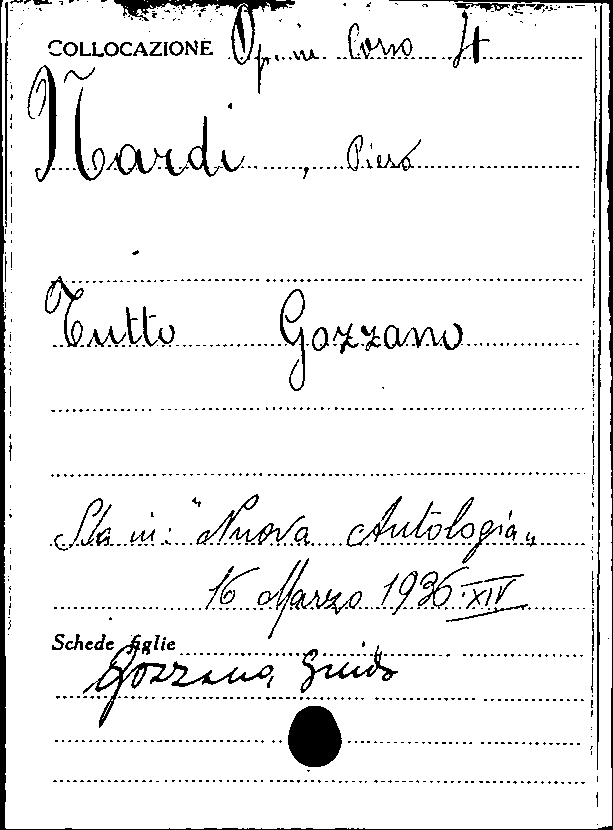 COLLOCAZIONE Op. in Corso It
Nardi, Piero
Tutto Gozzano
Sta in: "Nuova Antologia„
16 Marzo 1936.XIV
Schede figlie
Gozzano, Guido